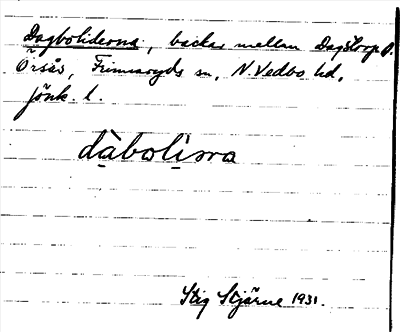 Dagboliderna, backar mellan Dagstorp o.
Örsås, Frinnaryds sn, N. Vedbo hd,
Jönk. l.
dàbolìs̩na
Stig Stjärne 1931.